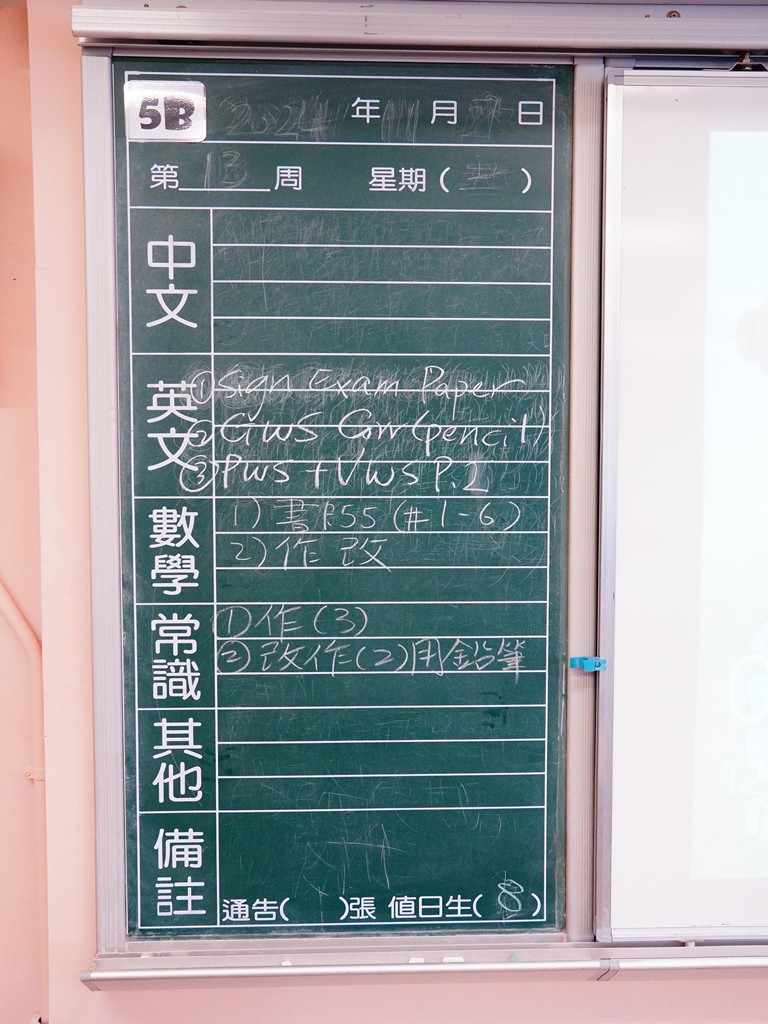 5B 2024年11月 日
第13周 星期( )
中文
英文
①Sign Exam Paper
②GWS Corr(pencil)
③PWS+VWS P.1
數學
1)書P.55(#1-6)
2)作改
常識
①作(3)
②改作(2)用鉛筆
其他
備註
通告( )張 值日生(8)